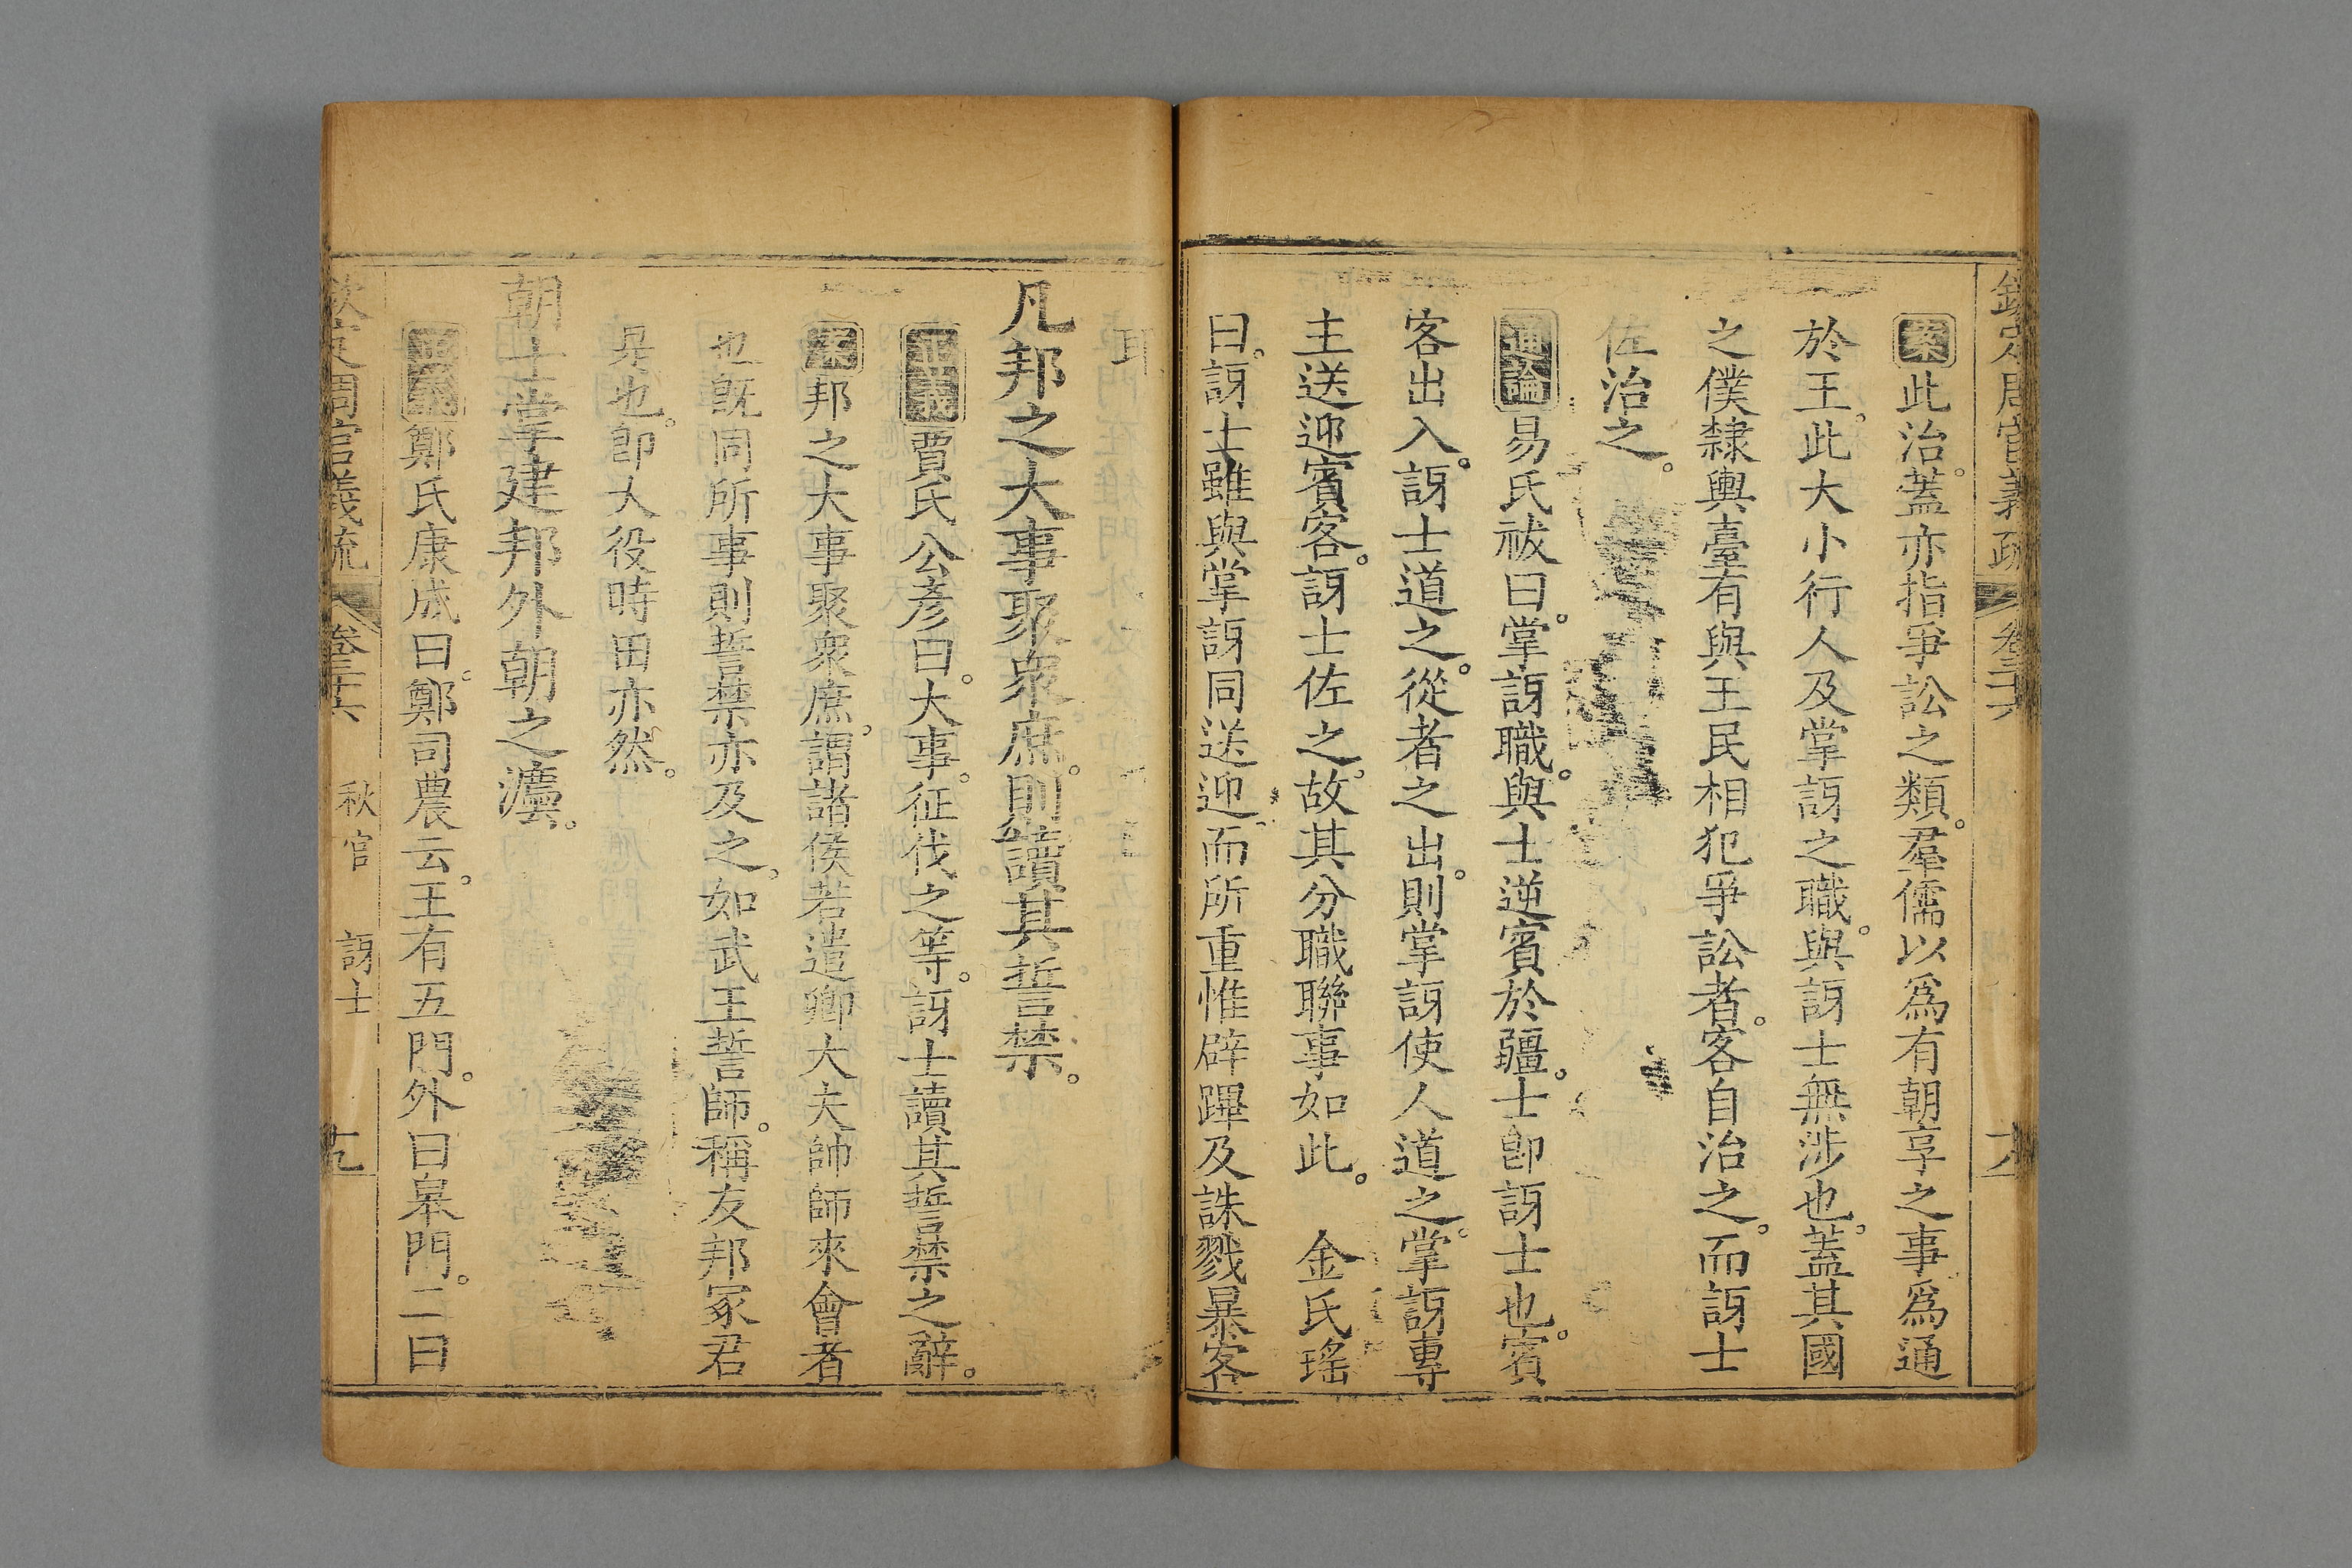 欽定周官義疏 卷三十六
案此治。蓋亦指爭訟之類。羣儒以爲有朝享之事爲通
於王。此大小行人及掌訝之職。與訝士無涉也。蓋其國
之僕隸輿臺有與王民相犯爭訟者。客自治之。而訝士
佐治之。
通論易氏祓曰。掌訝職。與士逆賓於疆。士卽訝士也。賓
客出入。訝士道之。從者之出。則掌訝使人道之。掌訝專
主送迎賓客。訝士佐之。故其分職聯事如此。 金氏瑤
曰。訝士雖與掌訝同送迎。而所重惟辟蹕及誅戮暴客
耳
凡邦之大事聚衆庶。則讀其誓禁。
正義賈氏公彥曰。大事。征伐之等。訝士讀其誓禁之辭。
案邦之大事聚衆庶。謂諸侯若遣卿大夫帥師來會者
也旣同所事則誓禁亦及之。如武王誓師。稱友邦冢君
是也。卽大役時田亦然。
朝士掌建邦外朝之灋。
正義鄭氏康成曰。鄭司農云。王有五門。外曰皋門。二曰
欽定周官義疏 卷三十六 秋官 訝士 十九